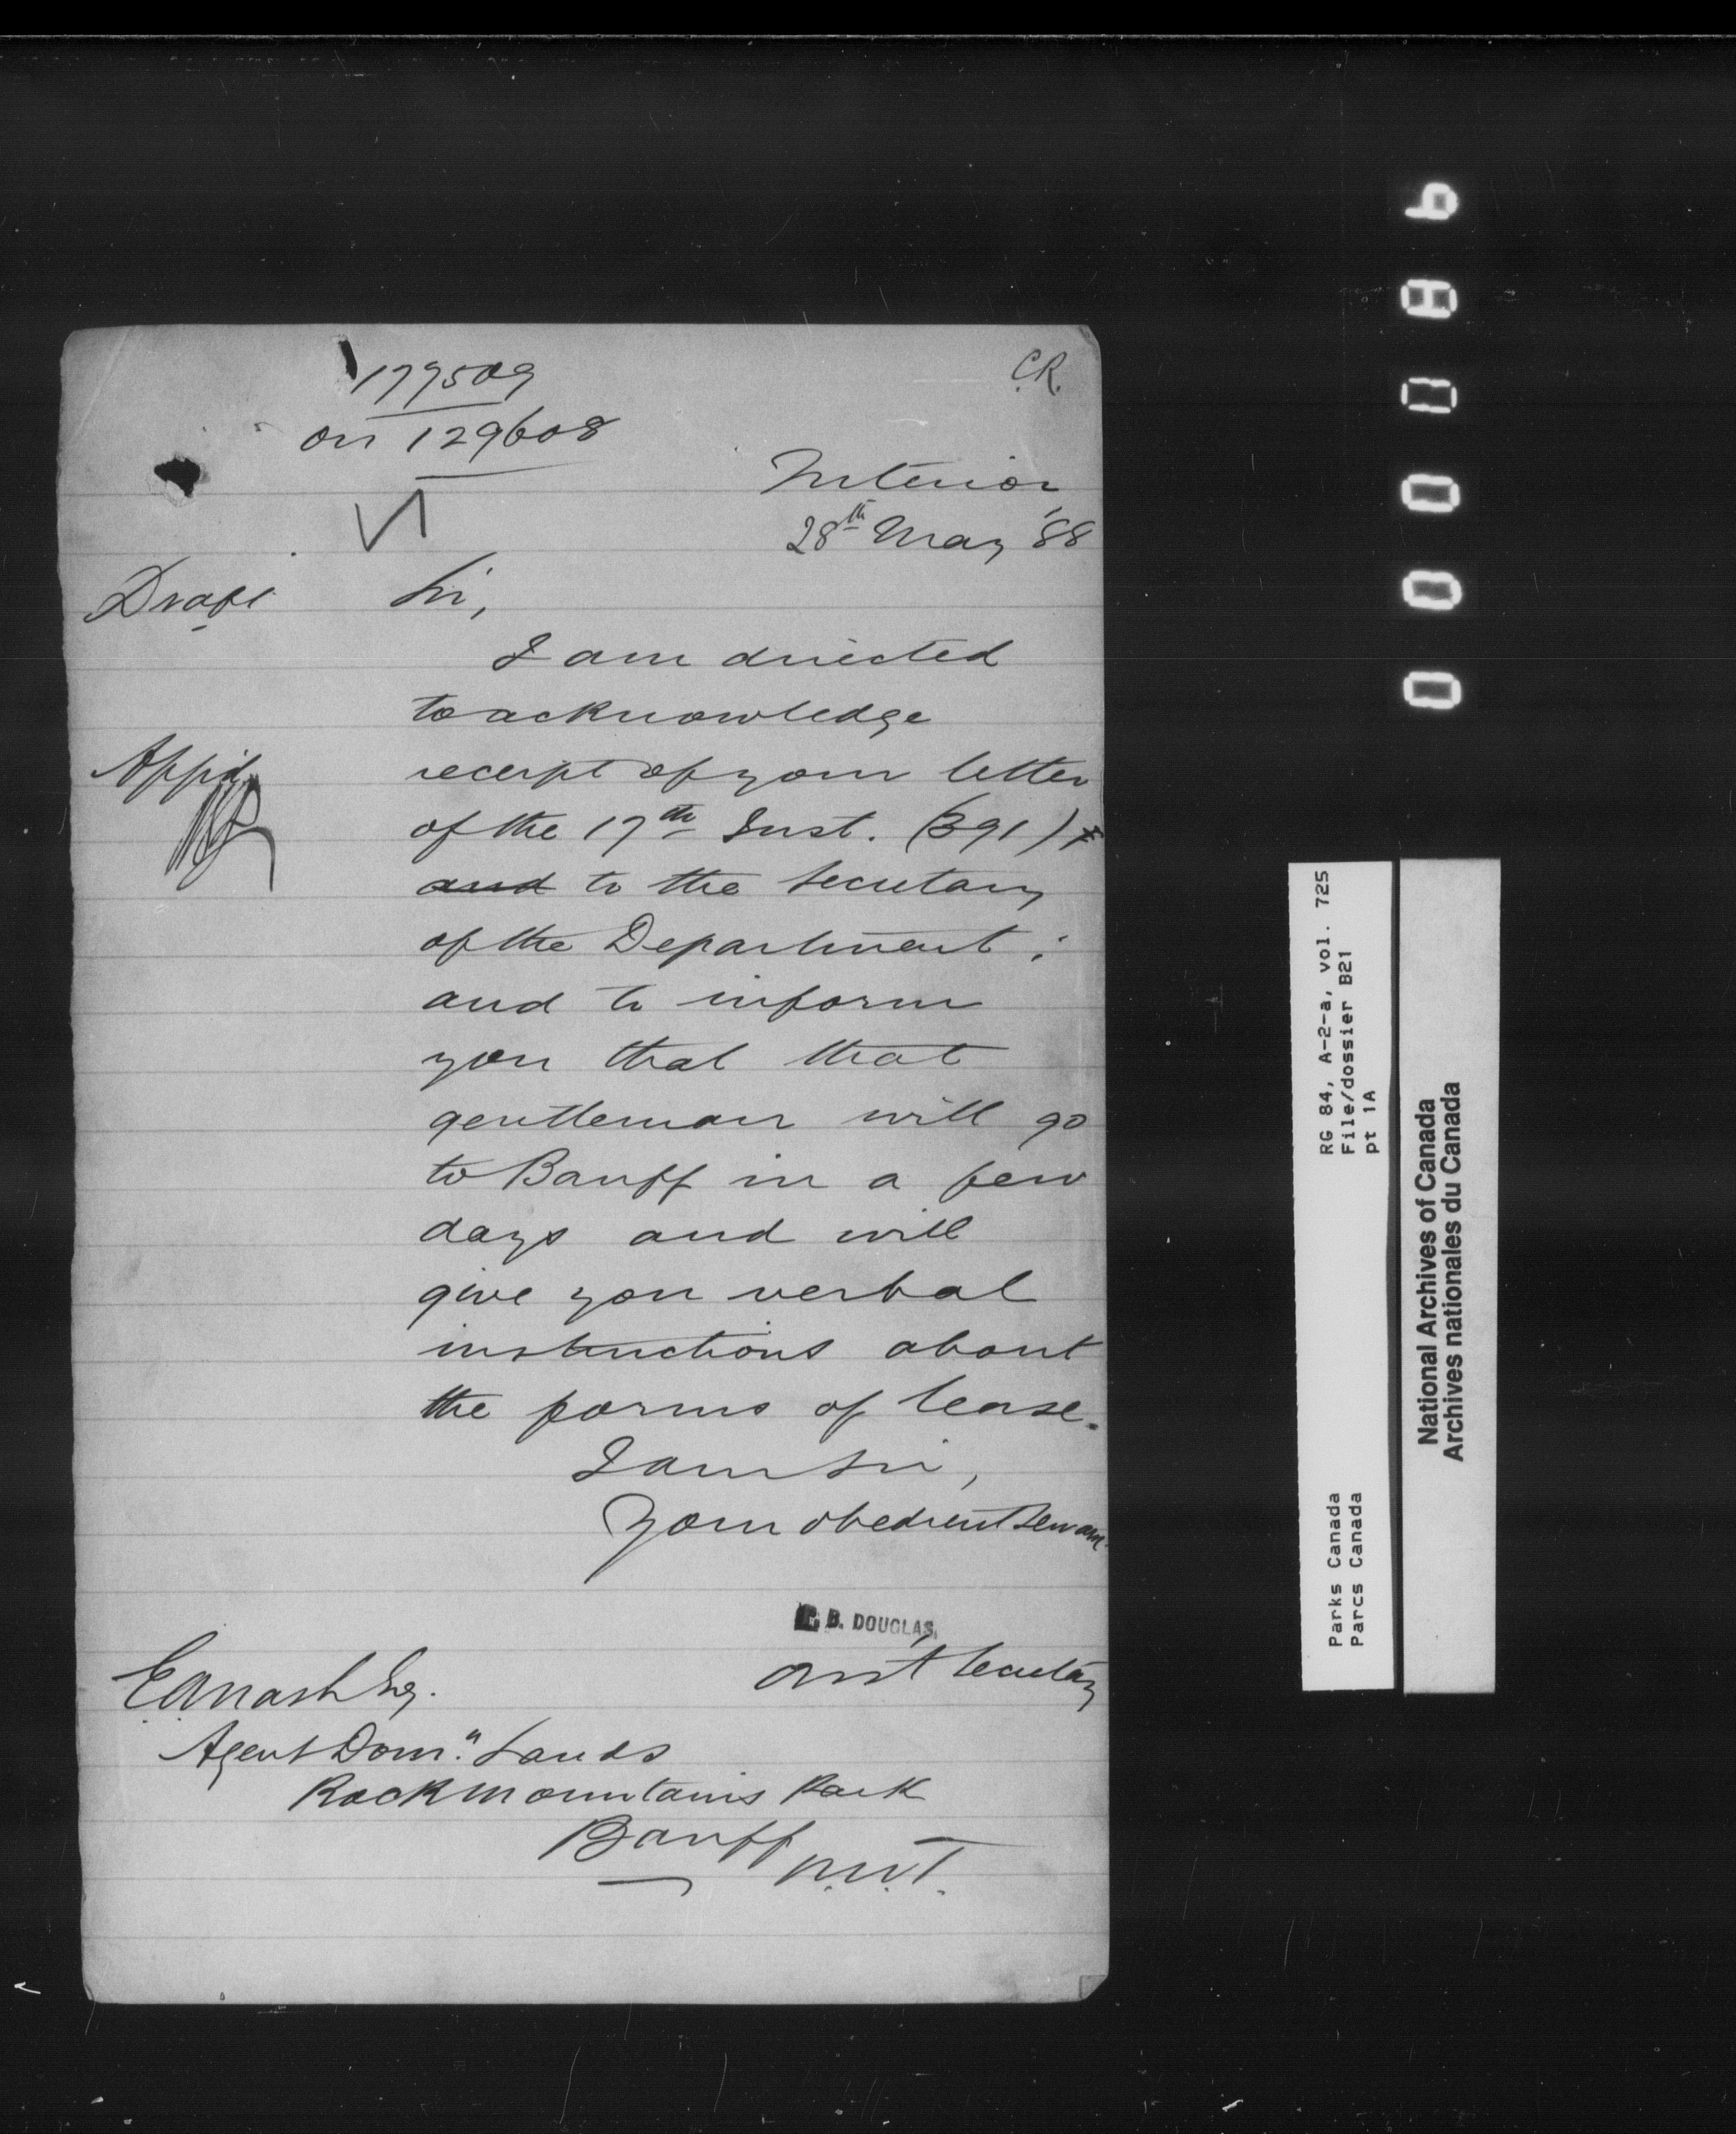 179509
on 129608
C.R.
Interior
28th May '88
Draft
Sir,
I am directed
to acknowledge
App'd
receipt of your letter
of the 17th Inst. (391)
and to the Secretary
of the Department;
and to inform
you that that
gentleman will go
to Banff in a few
days and will
give you verbal
instructions about
the forms of lease.
I am Sir,
Your obedient Servant
B. DOUGLAS,
Ass't Secretary
E A Nash Esq.
Agent Dom.n Lands
Rock Mountains Park
Banff
N.W.T.
RG 84, A-2-a, vol. 725
File/dossier B21
pt 1A
Parks Canada
Parcs Canada
National Archives of Canada
Archives nationales du Canada